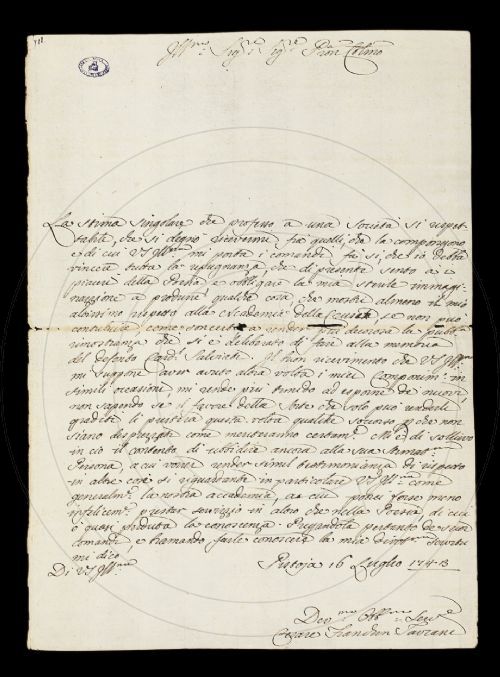 Ill.mo Sig.re Sig.re P.ron Col.mo
La stima singolare che professo a una Società sì rispet=
tabile, che si degnò ricevermi fra quelli, che la compongono
e di cui VS Ill.ma mi porta i comandi, fa sì, che io debba
vincere tutta la repugnanza, che di presente sento a i
piaceri della Poesia e obblighi la mia sterile immagi=
nazione a produrre qualche cosa che mostri almeno il mio
rispetto alla Accademia della se non può
contribuire come a render più decorosa la pubbl.ca
rimostranza che si è deliberato di fare alla memoria
del defonto Card. Salviati. Il buon ricevimento che VS Ill.ma
mi suppone aver avuto altra volta i miei Componim.ti in
simili occasioni mi rende più timido ad esporne de nuovi
non sapendo se il favore della sorte che solo può renderli
graditi li presterà questa volta qualche soccorso p che non
siano disprezzati come meriteranno certam.e Mi è di sollievo
in ciò il contento di ubbidire ancora alla sua stimat.ma
Persona, a cui vorrei render simil testimonianza di rispetto
in altre cose sì riguardante in particolare VS Ill.ma come
generalm.e la nostra accademia, a cui potrei forse meno
infelicem.e prestar servizio in altro che nella Poesia di cui
ò quasi perduta la conoscenza. Pregandola pertanto de suoi
comandi, e bramando farle conoscere la mia servitù
mi dico
Di VS Ill.ma
Pistoja 16 Luglio 1743
Dev.mo Obb.mo Serv.e
Cesare